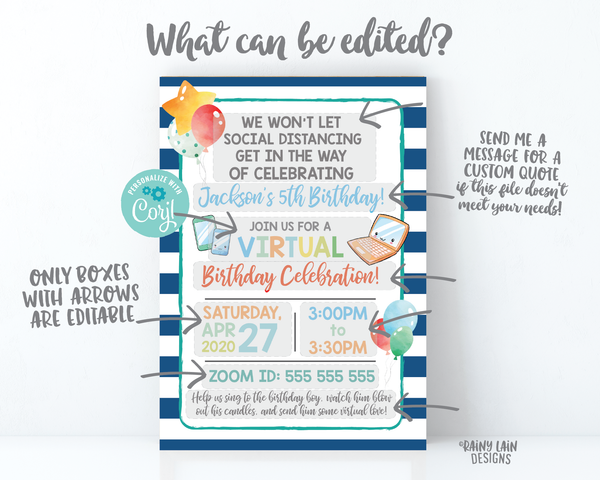 What can be edited?
WE WON'T LET
SOCIAL DISTANCING
GET IN THE WAY
OF CELEBRATING
Jackson's 5th Birthday!
PERSONALIZE WITH
Corjl
JOIN US FOR A
VIRTUAL
Birthday Celebration!
SATURDAY,
APR
2020
27
3:00PM
to
3:30PM
ZOOM ID: 555 555 555
Help us sing to the birthday boy, watch him blow
out his candles, and send him some virtual love!
ONLY BOXES
WITH ARROWS
ARE EDITABLE
SEND ME A
MESSAGE FOR A
CUSTOM QUOTE
if this file doesn't
meet your needs!
©RAINY LAIN
DESIGNS